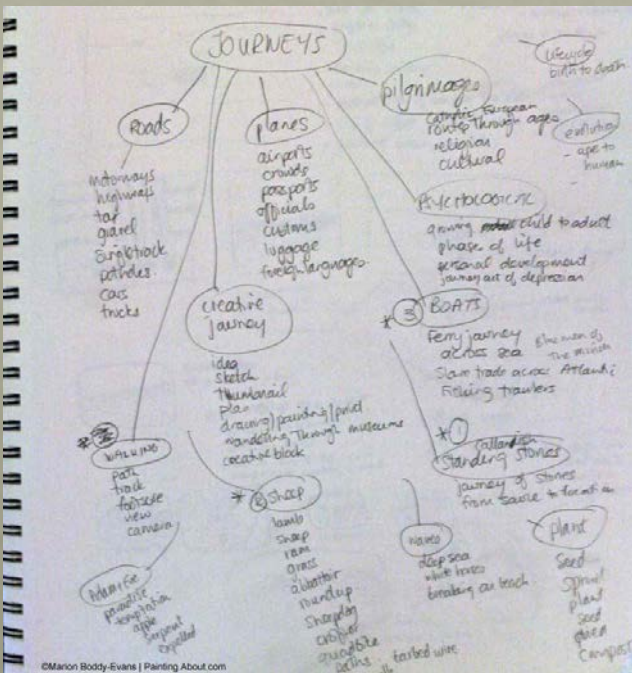 JOURNEYS
Roads
motorways
highways
tar
gravel
singletrack
potholes
cars
trucks
planes
airports
crowds
passports
officials
customs
luggage
foreign languages
pilgrimages
catholic European
routes through ages
religion
cultural
Lifecycle
birth to death
evolution
- ape to
human
-
PSYCHOLOGICAL
growing child to adult
phase of life
personal development
journey out of depression
creative
journey
idea
sketch
thumbnail
plan
drawing/painting/print
wandering through museums
creative block
* 3 BOATS
Ferry journey
across sea
Blue men of
the Minch
Slave trade across Atlantic
Fishing trawlers
*
WALKING
path
track
footsore
view
camera
* 2 Sheep
lamb
sheep
ram
grass
abbattoir
roundup
sheepdog
crofter
quadbike
paths barbed wire
* 1
Callanish
Standing Stones
journey of stones
from source to formation
Waves
deep sea
white horses
breaking on beach
plant
Seed
Sprout
plant
seed
dead
Compost
Adam+Eve
paradise
temptation
apple
serpent
expelled
©Marion Boddy-Evans | Painting About.com